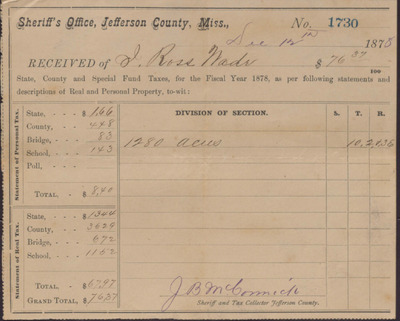 Sheriff's Office, Jefferson County, Miss.,
No. 1730
Dec 12th 1878
RECEIVED of J. Ross Wade $76 37
100
State, County and Special Fund Taxes, for the Fiscal Year 1878, as per following statements and
descriptions of Real and Personal Property, to-wit:
Statement of Personal Tax.
DIVISION OF SECTION. S. T. R.
State, - - - $ 1.66
County, - - - 4.48
Bridge, - - - 83
School, - - - 1.43
Poll, - - -
1280 acres 10,2,1&
TOTAL, - $ 8,40
Statement of Real Tax.
State, - - - $ 1344
County, - - - 3629
Bridge, - - - 672
School, - - - 1152
TOTAL, - $ 67,97
GRAND TOTAL, $ 76,37
J B McCormick
Sheriff and Tax Collector Jefferson County.